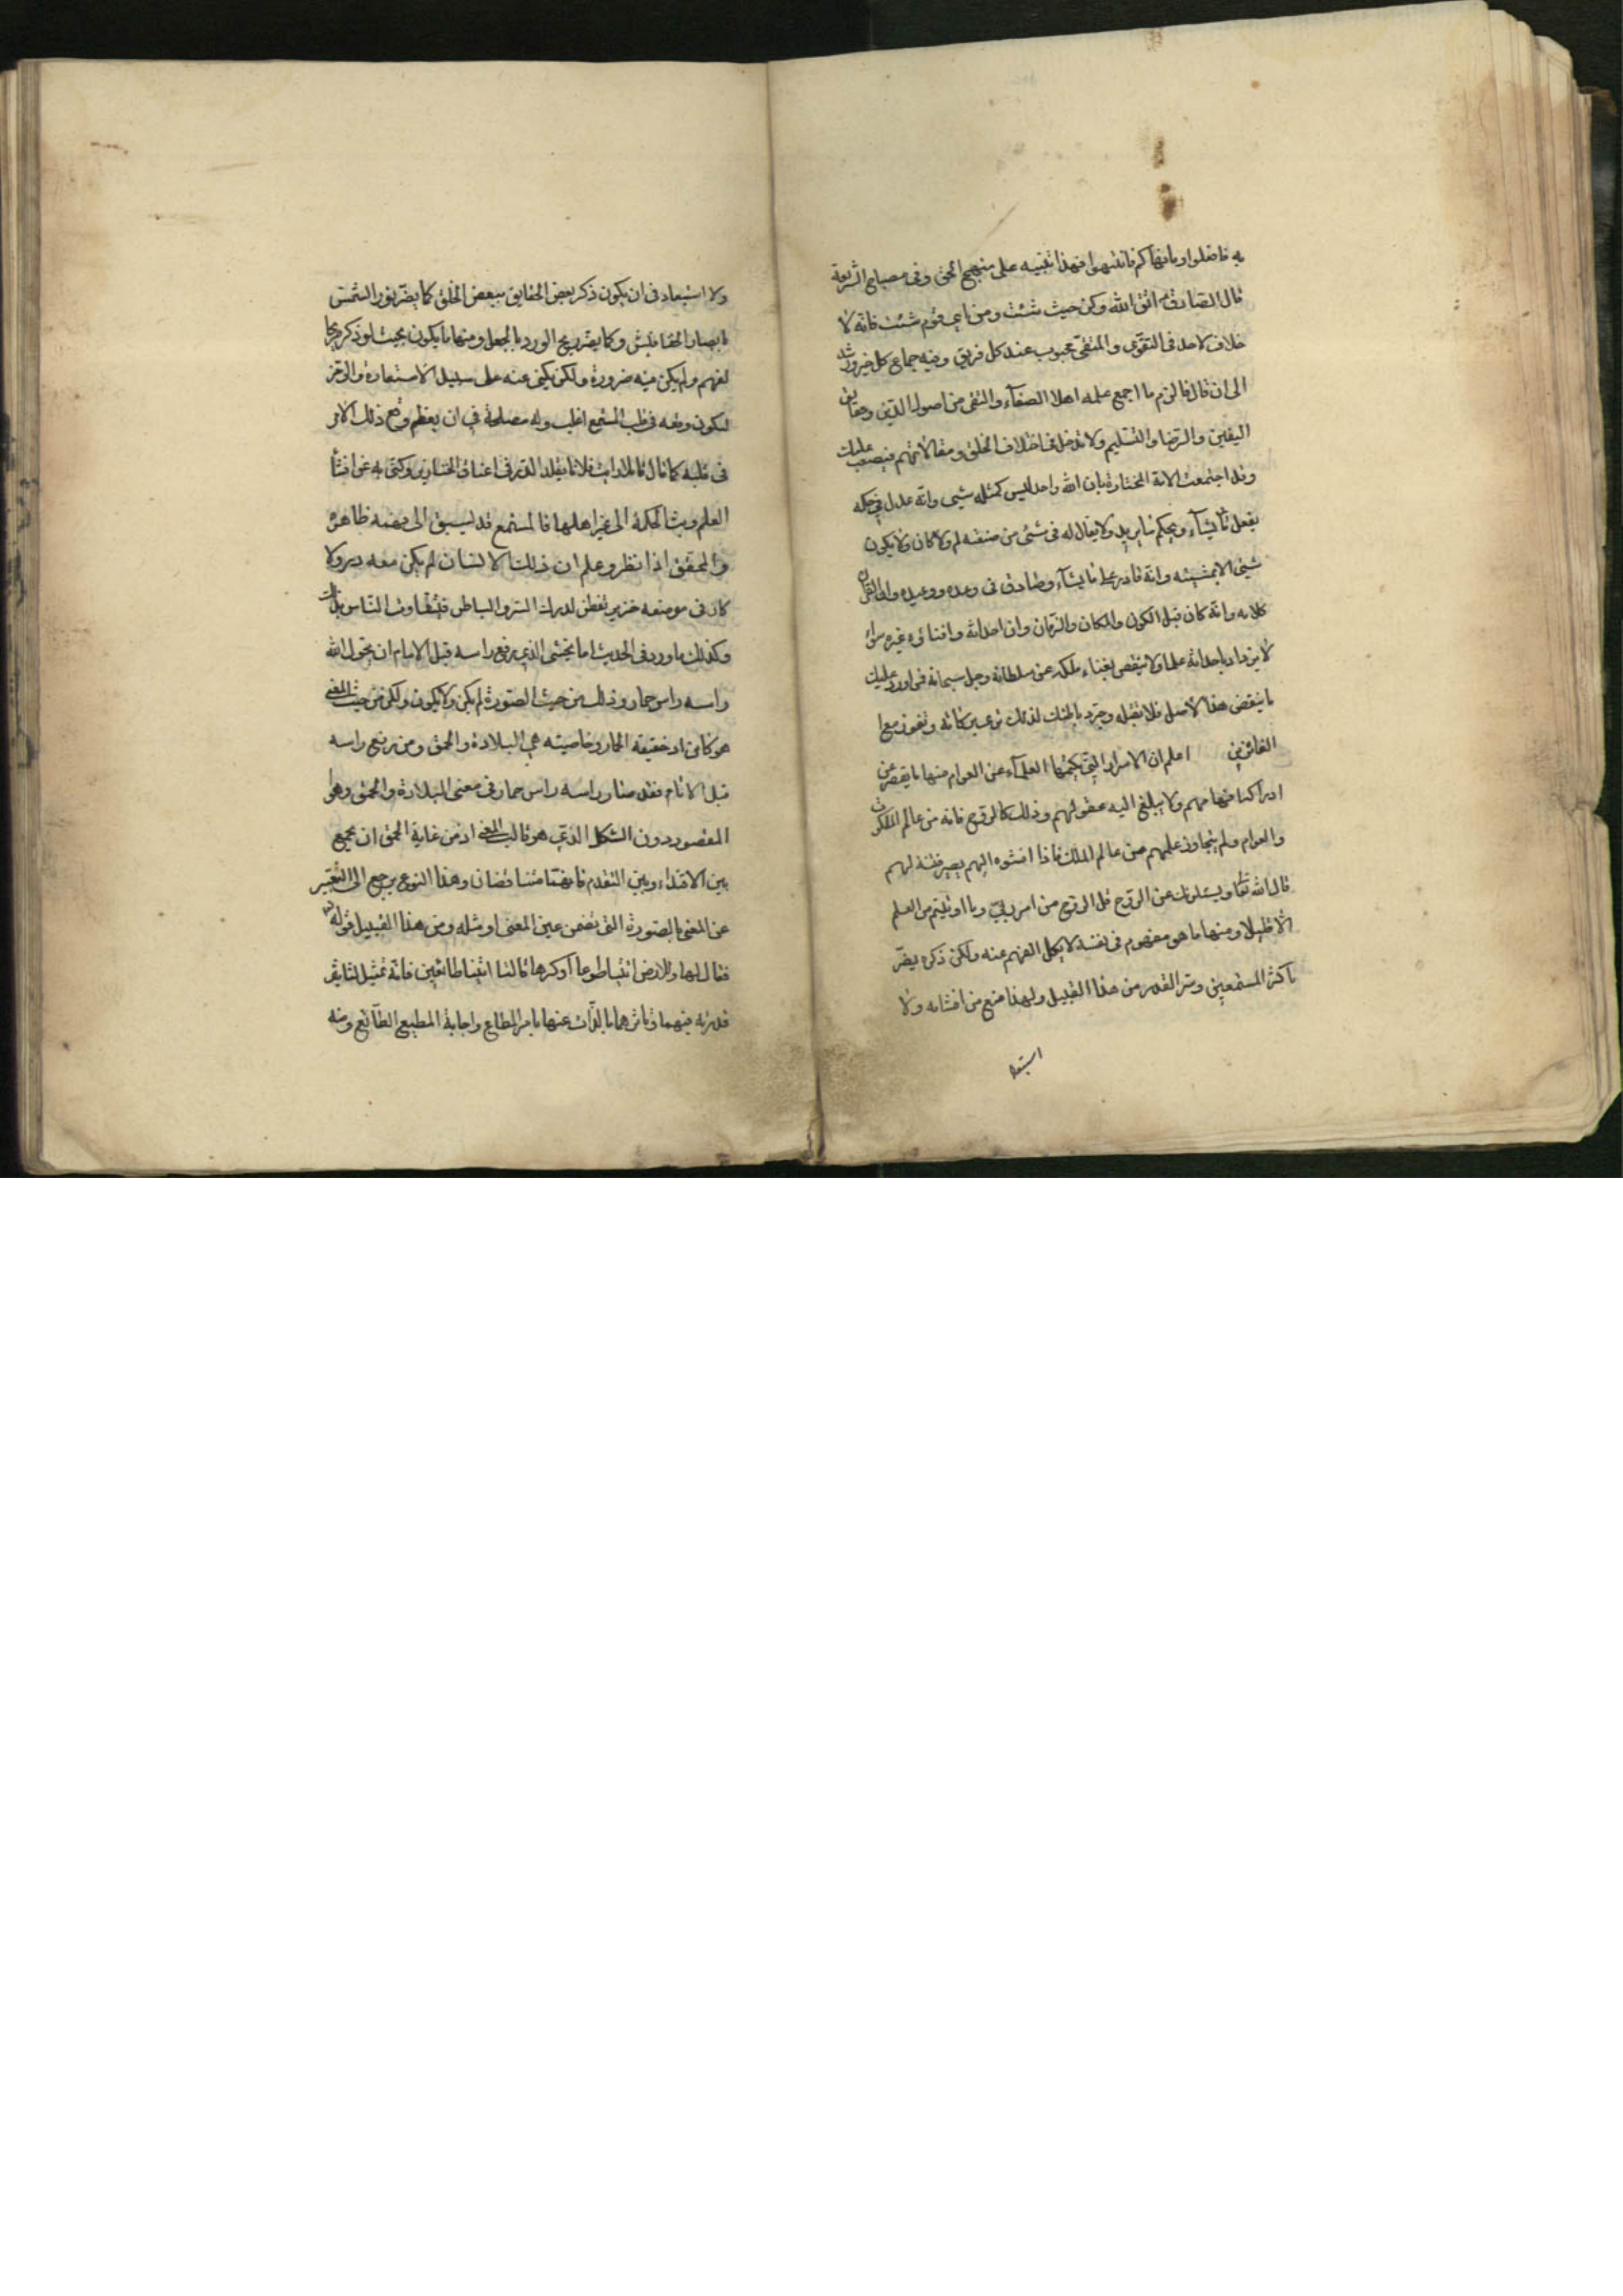 به فافعلوا وما نهاكم فانتهوا فهذا تنبيه على منهج الحق وفى مصباح الشريعة
قال الصادق اتق الله وكن حيث شئت ومن اى قوم شئت فانه لا
خلاف لاحد فى التقوى والمتقى محبوب عند كل فريق وفيه جماع كل خير ورشد
الى ان قال فالزم ما اجمع عليه اهل الصفاء والتقى من اصول الدين وحقايق
اليقين والرضا والتسليم ولا تدخل فى اختلاف الخلق ومقالاتهم فيصعب عليك
وقد اجتمعت الامة المختارة بان الله واحد ليس كمثله شيى وانه عدل فى حكمه
يفعل ما يشاء ويحكم ما يريد ولا يقال له فى شئ من صنعه لم ولا كان ولا يكون
شيئ الا بمشيته وانه قادر على ما يشاء وصادق فى وعده ووعيده وان القران
كلامه وانه كان قبل الكون والمكان والزمان وان احداثه وافنائه غيره سواء
لا يزداد باحداثه علما ولا ينقص بفناء ملكه عز سلطانه وجل سبحانه فمن اورد عليك
ما ينقض هذا الاصل فلا تقبله وجرد باطنك لذلك ترى بركاته وتفوز مع
الفائزين اعلم ان الاسرار التى يكتمها العلماء عن العوام منها ما يقصر عن
ادراكها فهامهم ولا يبلغ اليه عقولهم وذلك كالروح فانه من عالم الملكوت
والعوام ولم يتجاوز علمهم من عالم الملك فاذا افشوه اليهم يصير فتنة لهم
قال الله تعا ويسئلونك عن الروح قل الروح من امر ربى وما اوتيتم من العلم
الا قليلا ومنها ما هو مفهوم فى نفسه لا يكل الفهم عنه ولكن ذكره يضر
باكثر المستمعين وسر القدر من هذا القبيل ولهذا منع من افشائه ولا
استبعاد
ولا استبعاد فى ان يكون ذكر بعض الحقايق ببعض الخلق كما يضر نور الشمس
بابصار الخفافيش وكما يضر ريح الورد بالجعل ومنها ما يكون بحيث لو ذكر صريحا
لفهم ولم يكن فيه ضرورة ولكن يكنى عنه على سبيل الاستعارة والرمز
ليكون وقعه فى قلب المستمع اغلب وله مصلحة فى ان يعظم وقع ذلك الامر
فى قلبه كما قال قائل رايت فلانا يقلد الدر فى اعناق الخنازير وكنى به عن افشأ
العلم وبث الحكمة الى غير اهلها فالمستمع قد يسبق الى فهمه ظاهره
والمحقق اذا نظر وعلم ان ذلك الانسان لم يكن معه در ولا
كان فى موضعه خنزير تفطن لدرك السر والباطن فيتفاوت الناس بذلك
وكذلك ما ورد فى الحديث اما يخشى الذى يرفع راسه قبل الامام ان يحول الله
راسه راس حمار وذلك من حيث الصورة لم يكن ولا يكون ولكن من حيث المعنى
هو كائن اذ حقيقة الحمار وخاصيته هى البلادة والحمق ومن رفع راسه
قبل الامام فقد صار راسه راس حمار فى معنى البلادة والحمق وهو
المقصود دون الشكل الذى هو قالب المعنى اذ من غاية الحمق ان يجمع
بين الاقتداء وبين التقدم فانهما متناقضان وهذا النوع يرجع الى التعبير
عن المعنى بالصورة التى تضمن عين المعنى او مثله ومن هذا القبيل قوله
فقال لها وللارض ائتيا طوعا او كرها قالتا اتينا طائعين فانه تمثيل لتاثير
قدرته فيهما وتاثرهما بالذات عنها بامر المطاع واجابة المطيع الطائع ومنه